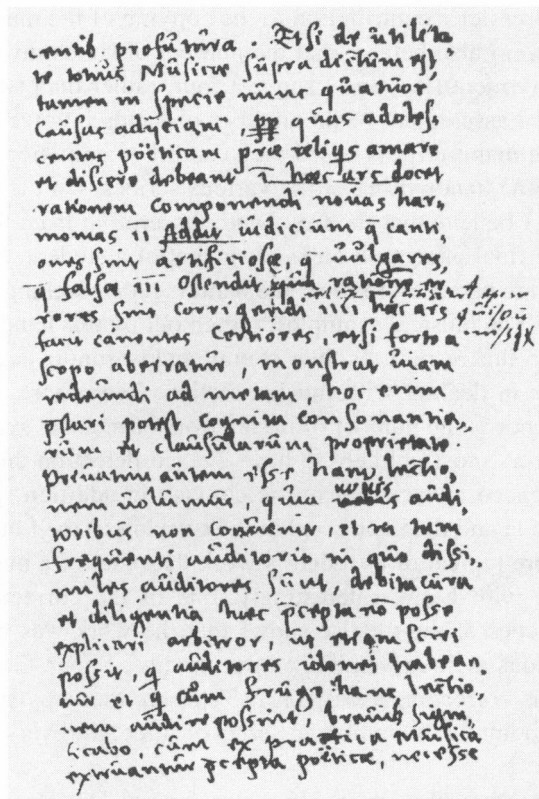 centib. profutura Etsi de utilita
te totius Musicae supra dictum est,
tamen in specie nunc quatuor
Causas adijciam, quas adolesc
centes poëticam prae reliqis amare
et discere debeant i haec ars docet
rationem Componendi novas har,
monias ii Addit iudicium q canti
ones sint artificiosae, q vulgares,
q falsae iii Ostendit qua ratione er
rores sint corrigendi iiii haec ars
facit canentes etsi forte a
scopo aberratur, monstrat viam
redeundi ad metam hoc enim
pstari potest cognita consonantia,
rum et clausularum proprietate
Privatim autem esse hanc lectio,
nem quum nobis audi
toribus non et rei tum
frequenti auditorio in quo dissi
miles auditores sunt, debita cura
et diligentia haec pcepta no posse
explicari autor, ut etiam sciri
possit, q auditores idonei habean,
tur et q cum fruge hanc lectio,
nem audire possint, breviter signi,
ficabo, cum ex practica Musica
extruantur pcepta poëticae, necesse